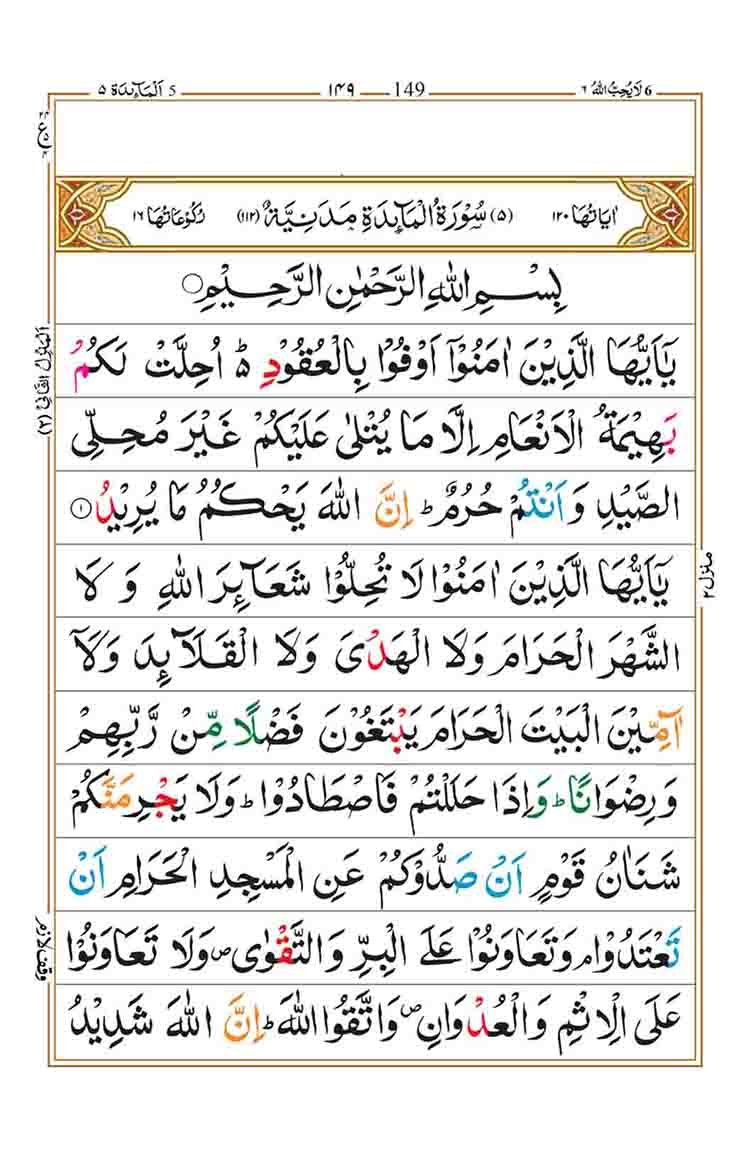 6 لَا يُحِبُّ اللهُ ٦
149 ١٤٩
5 اَلْمَآئِدَة ٥
اٰيَاتُهَا ١٢٠ (٥) سُوْرَةُ الْمَآئِدَةِ مَدَنِيَّةٌ (١١٢) رُكُوْعَاتُهَا ١٦
بِسْمِ اللهِ الرَّحْمٰنِ الرَّحِيْمِ
يٰٓاَيُّهَا الَّذِيْنَ اٰمَنُوْٓا اَوْفُوْا بِالْعُقُوْدِ ؕ۬ اُحِلَّتْ لَكُمْ
بَهِيْمَةُ الْاَنْعَامِ اِلَّا مَا يُتْلٰى عَلَيْكُمْ غَيْرَ مُحِلِّى
الصَّيْدِ وَاَنْتُمْ حُرُمٌ ؕ اِنَّ اللهَ يَحْكُمُ مَا يُرِيْدُ ١
يٰٓاَيُّهَا الَّذِيْنَ اٰمَنُوْا لَا تُحِلُّوْا شَعَآئِرَ اللهِ وَلَا
الشَّهْرَ الْحَرَامَ وَلَا الْهَدْىَ وَلَا الْقَلَآئِدَ وَلَآ
آٰمِّيْنَ الْبَيْتَ الْحَرَامَ يَبْتَغُوْنَ فَضْلًا مِّنْ رَّبِّهِمْ
وَرِضْوَانًا ؕ وَاِذَا حَلَلْتُمْ فَاصْطَادُوْا ؕ وَلَا يَجْرِمَنَّكُمْ
شَنَاٰنُ قَوْمٍ اَنْ صَدُّوْكُمْ عَنِ الْمَسْجِدِ الْحَرَامِ اَنْ
تَعْتَدُوْا ۘ وَتَعَاوَنُوْا عَلَى الْبِرِّ وَالتَّقْوٰى ۖ وَلَا تَعَاوَنُوْا
عَلَى الْاِثْمِ وَالْعُدْوَانِ ۖ وَاتَّقُوا اللهَ ؕ اِنَّ اللهَ شَدِيْدُ
اَلْمَنْزِلُ الثَّانِيْ (٢)
منزل ٢
وقف لازم